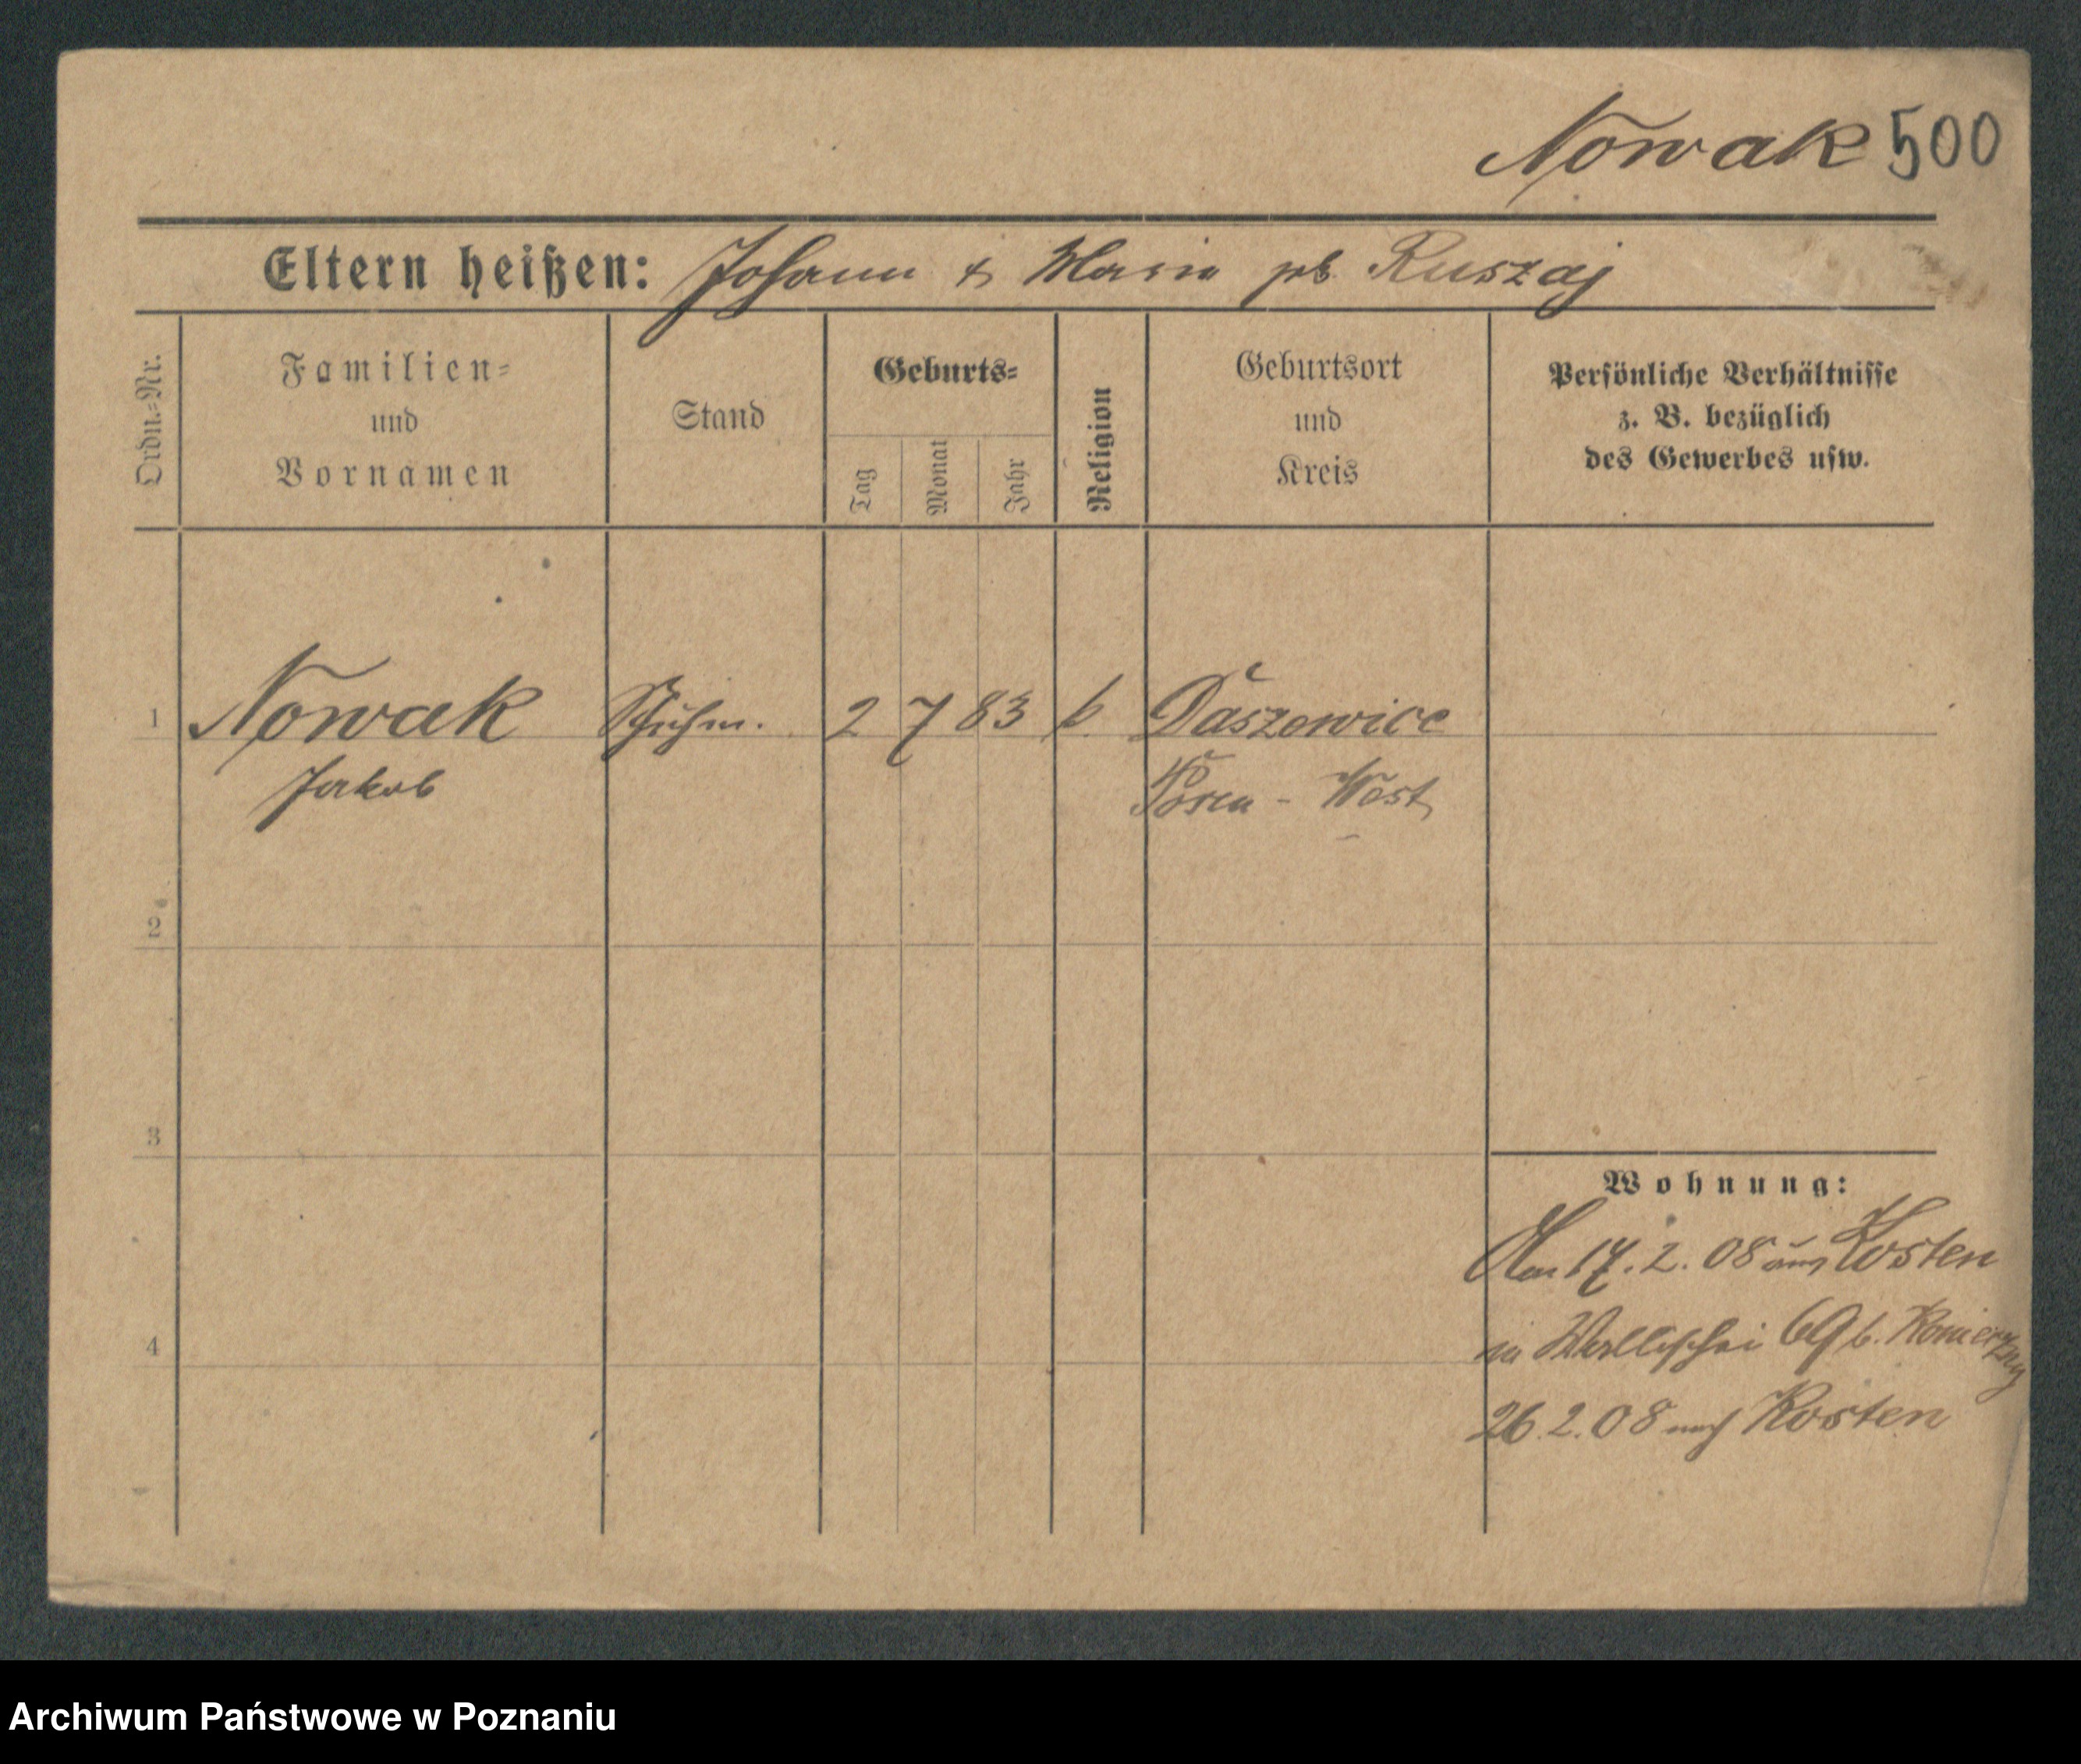 Nowak 500
Eltern heißen: Johann & Maria geb. Ruszaj
Ordn.-Nr.
Familien-
und
Vornamen
Stand
Geburts-
Tag
Monat
Jahr
Religion
Geburtsort
und
Kreis
Persönliche Verhältnisse
z. B. bezüglich
des Gewerbes usw.
1 Nowak Schuhm. 2 7 83 k. Daszewice
Jakob Posen - West
2
3
Wohnung:
Am 17. 2. 08 aus Kosten
in Wallischei 69 b.
4
26. 2. 08 nach Kosten
Archiwum Państwowe w Poznaniu